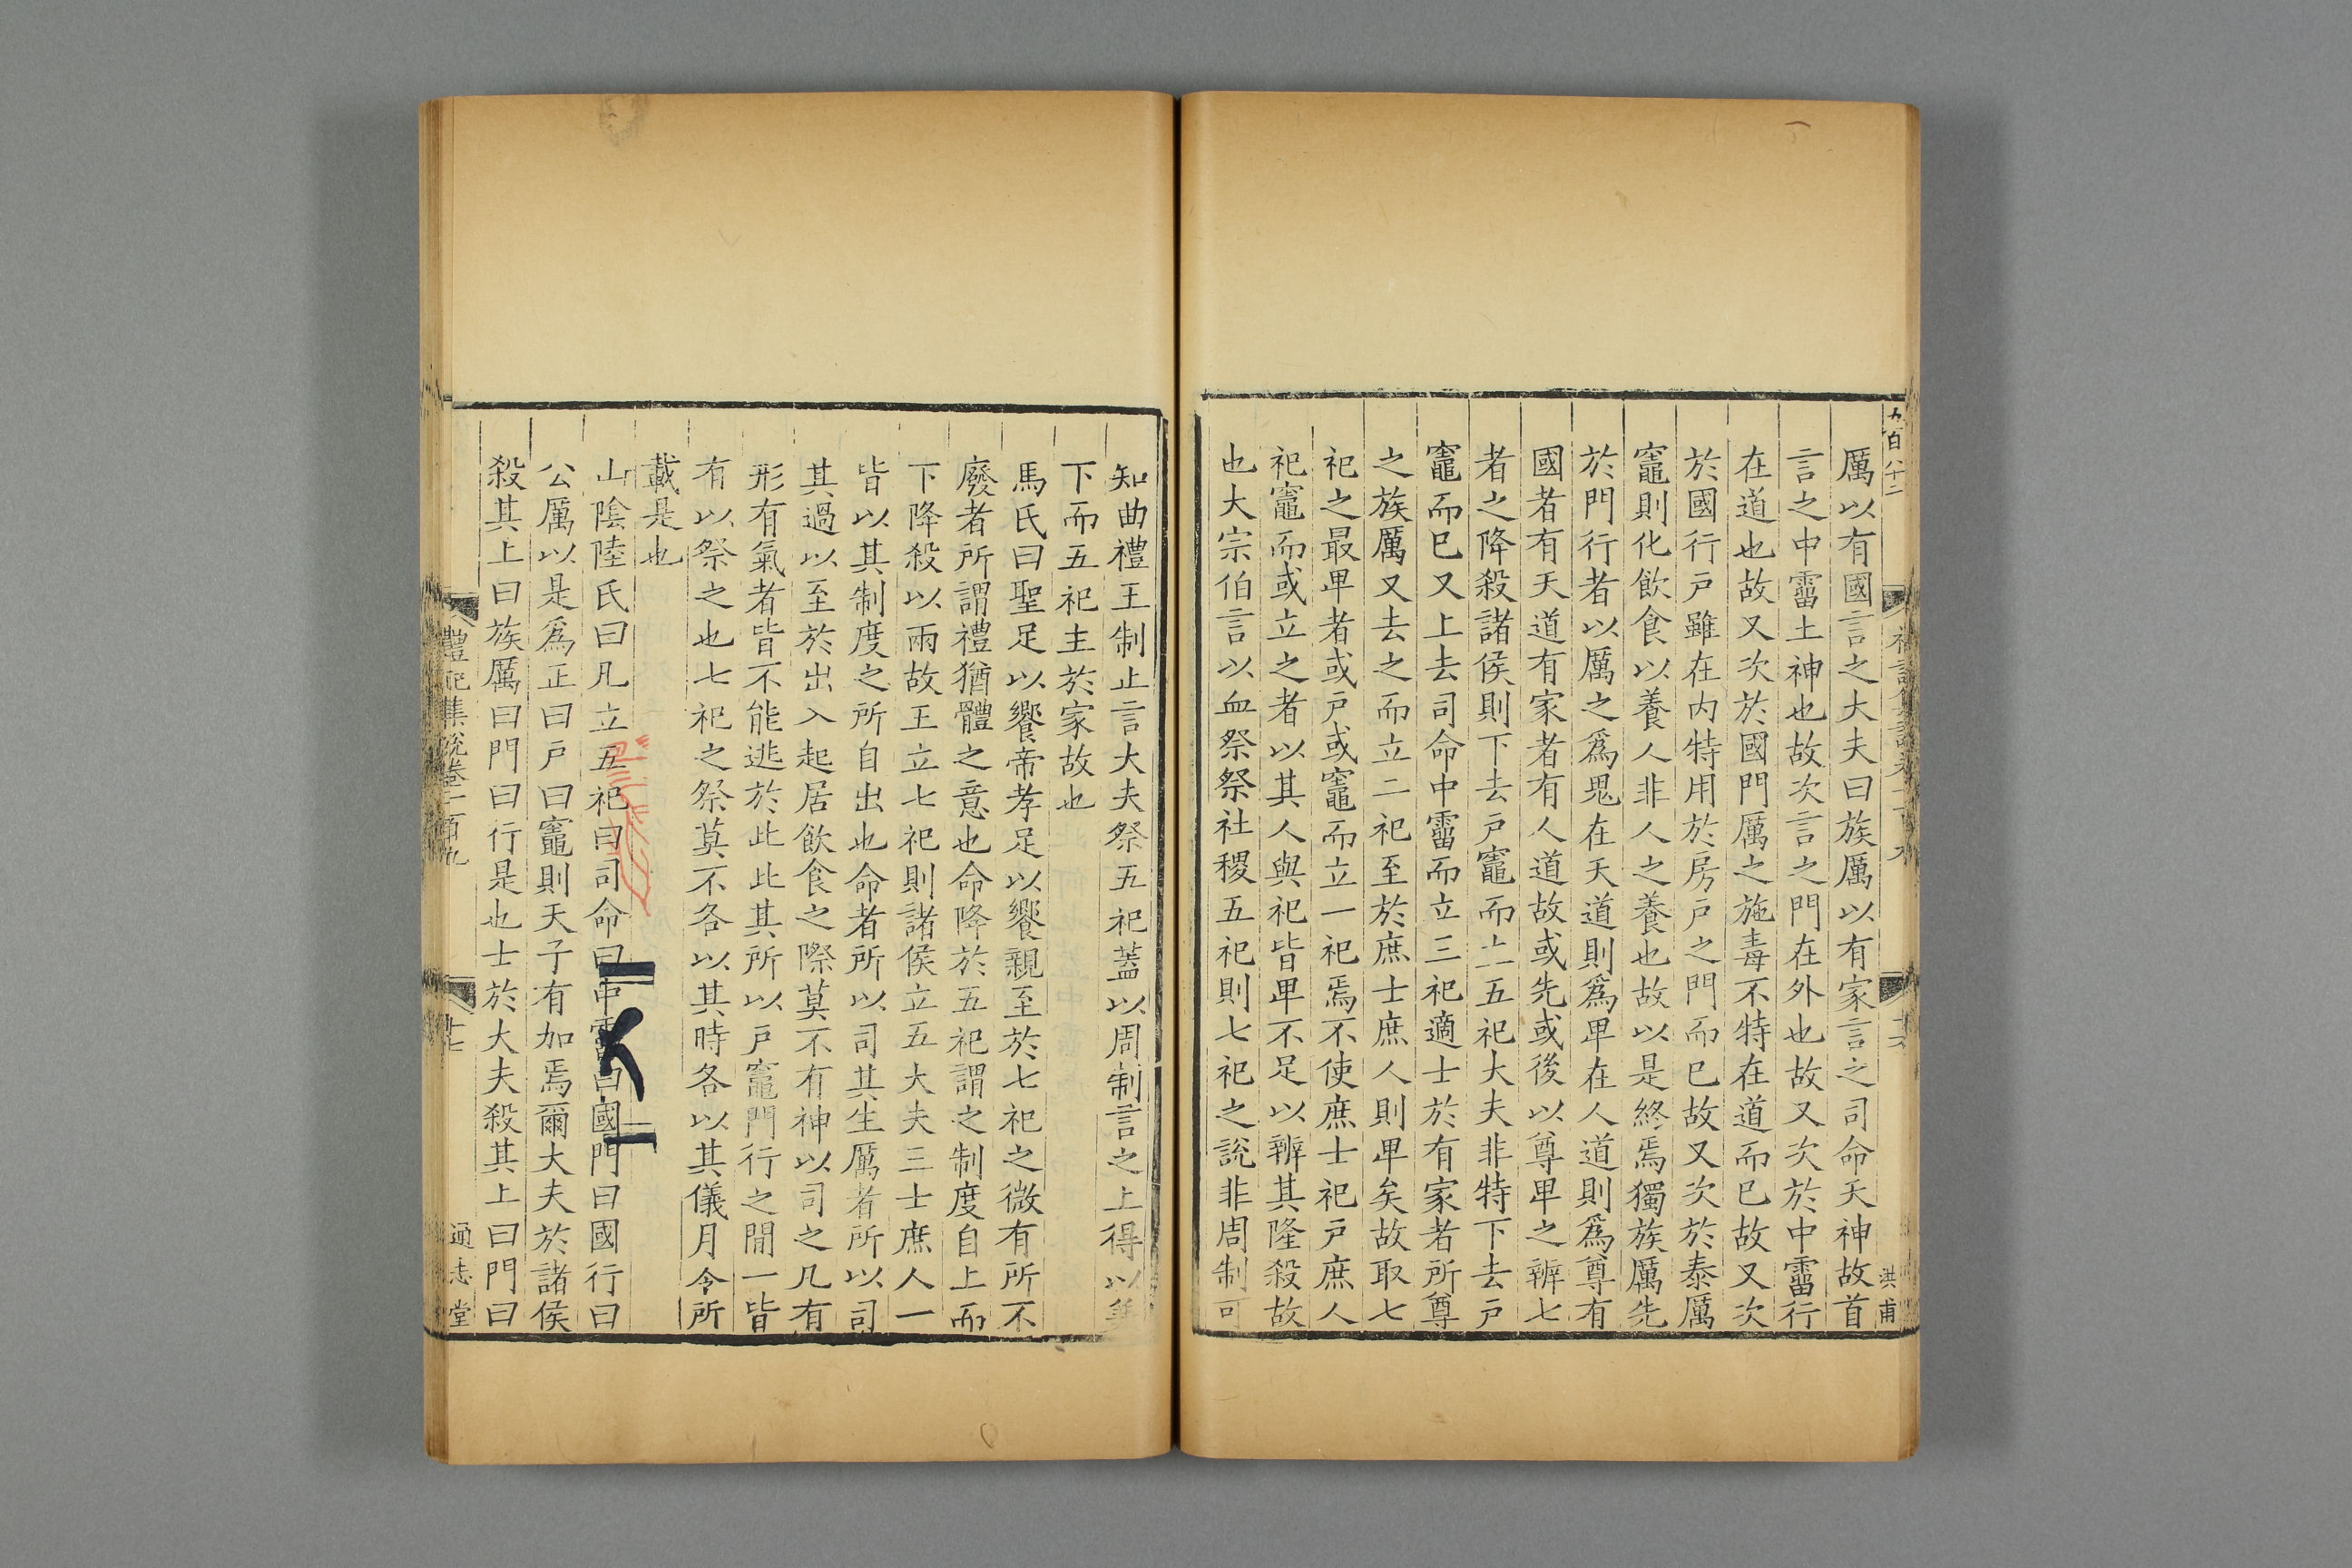 厲以有國言之大夫曰族厲以有家言之司命天神故首
言之中霤土神也故次言之門在外也故又次於中霤行
在道也故又次於國門厲之施毒不特在道而已故又次
於國行戸雖在内特用於房戸之門而已故又次於泰厲
竈則化飲食以養人非人之養也故以是終焉獨族厲先
於門行者以厲之爲鬼在天道則爲卑在人道則爲尊有
國者有天道有家者有人道故或先或後以尊卑之辨七
者之降殺諸侯則下去戸竈而立五祀大夫非特下去戸
竈而已又上去司命中霤而立三祀適士於有家者所尊
之族厲又去之而立二祀至於庶士庶人則卑矣故取七
祀之最卑者或戸或竈而立一祀焉不使庶士祀戸庶人
祀竈而或立之者以其人與祀皆卑不足以辨其隆殺故
也大宗伯言以血祭祭社稷五祀則七祀之説非周制可
知曲禮王制止言大夫祭五祀蓋以周制言之上得以兼
下而五祀主於家故也
馬氏曰聖足以饗帝孝足以饗親至於七祀之微有所不
廢者所謂禮猶體之意也命降於五祀謂之制度自上而
下降殺以兩故王立七祀則諸侯立五大夫三士庶人一
皆以其制度之所自出也命者所以司其生厲者所以司
其過以至於出入起居飲食之際莫不有神以司之凡有
形有氣者皆不能逃於此此其所以戸竈門行之閒一皆
有以祭之也七祀之祭莫不各以其時各以其儀月令所
載是也
山陰陸氏曰凡立五祀曰司命曰中霤曰國門曰國行曰
公厲以是爲正曰戸曰竈則天子有加焉爾大夫於諸侯
殺其上曰族厲曰門曰行是也士於大夫殺其上曰門曰
禮記集說卷一百九
廿七
通志堂